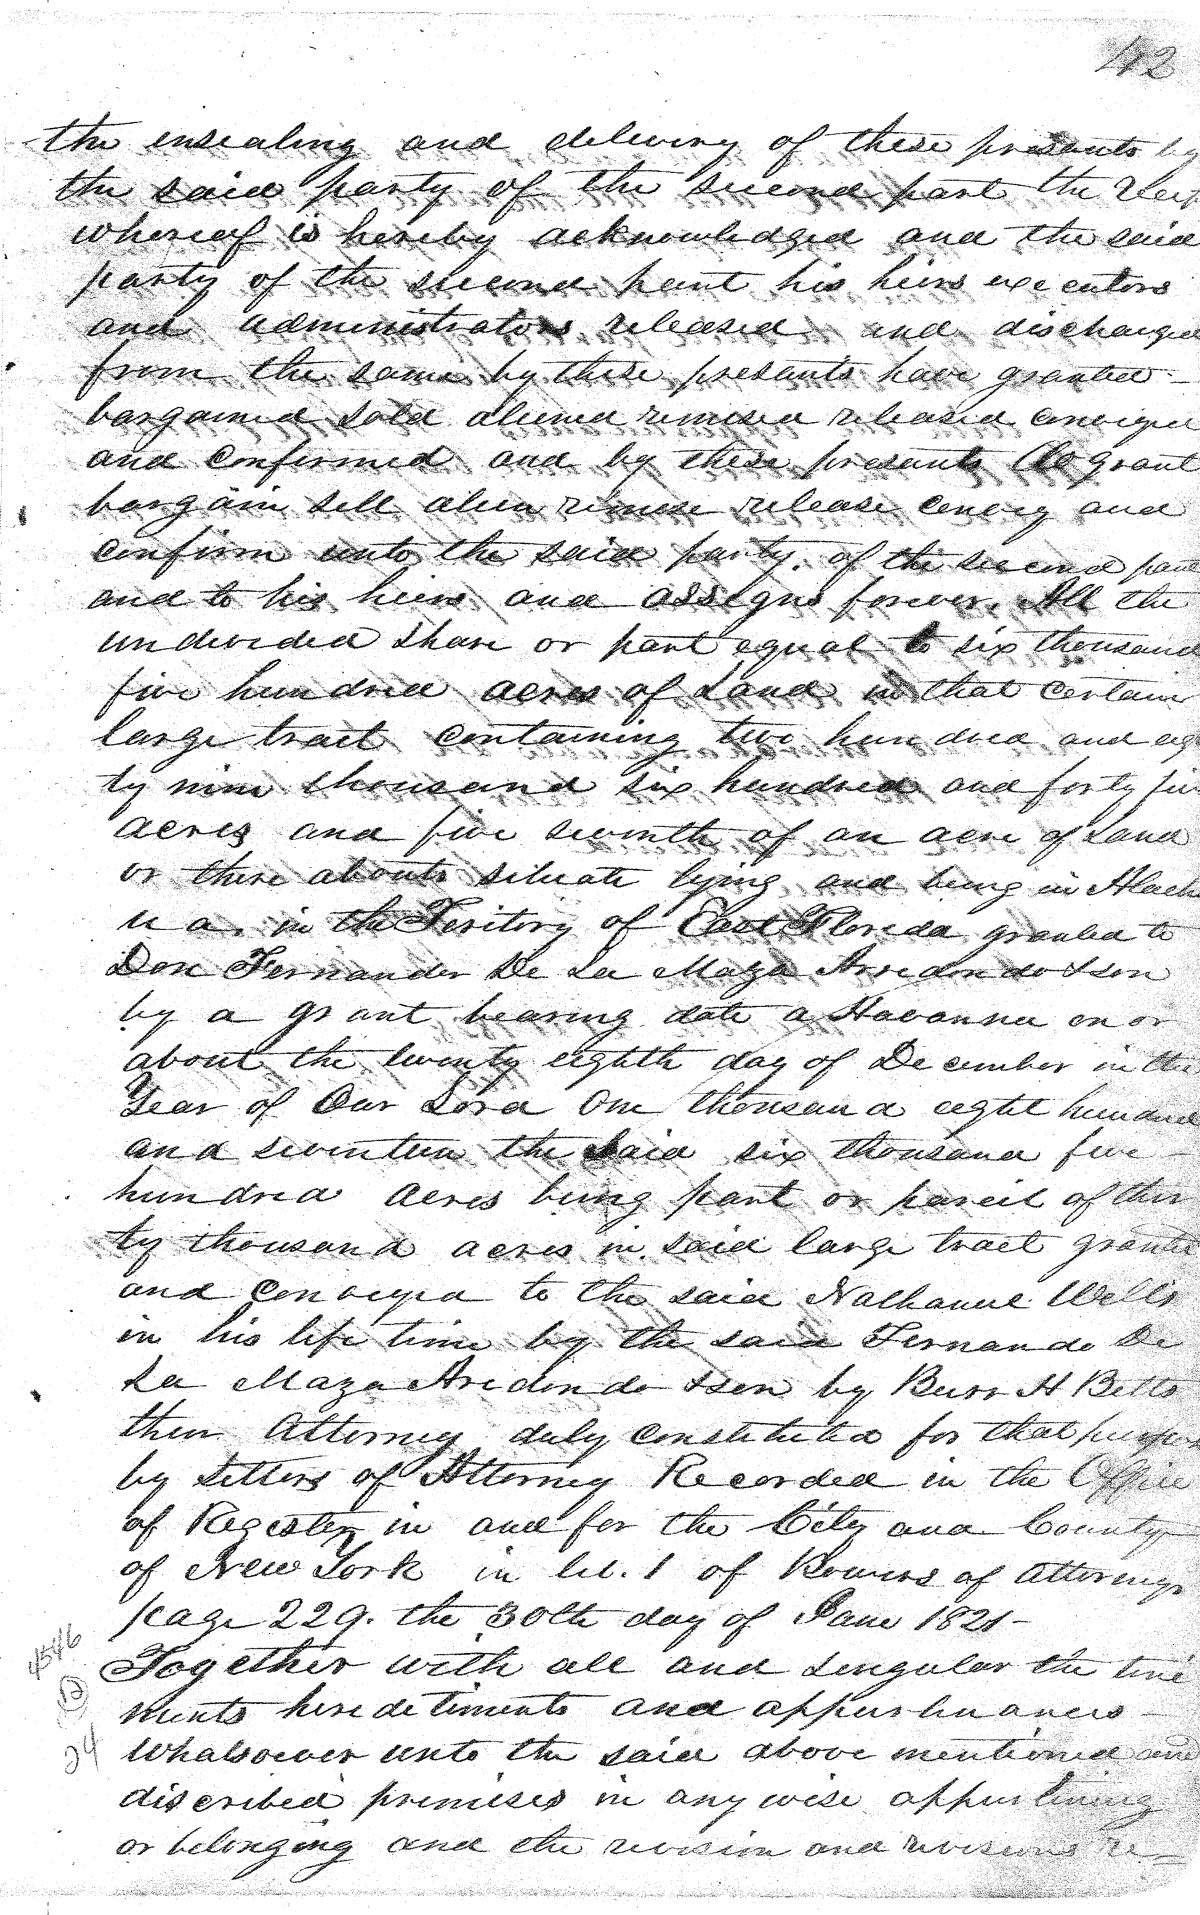 42
the ensealing and delivery of these presents by
the said party of the second part the
whereof is hereby acknowledged and the said
party of the second part his heirs executors
and administrators released and discharged
from the same by these presents have granted
bargained sold aliened remised released conveyed
and confirmed and by these presents do grant
bargain sell alien remise release convey and
confirm unto the said party of the second part
and to his heirs and assigns forever. All the
undivided share or part equal to six thousand
five hundred acres of Land in that certain
large tract containing two hundred and eigh
ty nine thousand six hundred and forty five
acres and five seventh of an acre of Land
or there abouts situate lying and being in Alach
u a. in the Teritory of East Florida granted to
Don Fernander De La Maza Arredondo & son
by a grant bearing date a Havanna on or
about the twenty eighth day of December in the
Year of Our Lord One thousand eight hundred
and seventeen the Said six thousand five
hundred acres being part or parcil of thir
ty thousand acres in said large tract granted
and conveyed to the said Nathaniel Wells
in his life time by the said Fernando De
La Maza Aredondo & son by Burr H Betts
their Attorney duly constituted for that purpose
by Letters of Attorney Recorded in the Office
of Register in and for the City and County
of New York in lib. 1 of Powers of Attorneys
page 229. the 30th day of June 1821-
4546
12
24
Together with all and singular the tene
ments heredetiments and appurtenances
Whatsoever unto the said above mentioned and
discribed premises in any wise appurtaining
or belonging and the revision and revisions re=